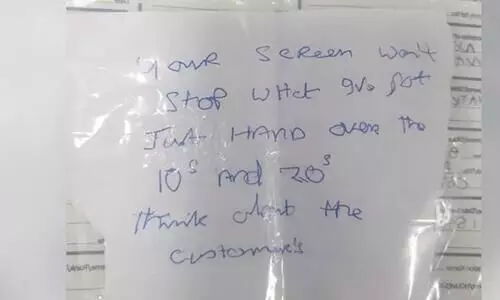 Your SCREEN won't
STOP WHat I've got
JUST HAND over the
10s AND 20s
think about the
customer's